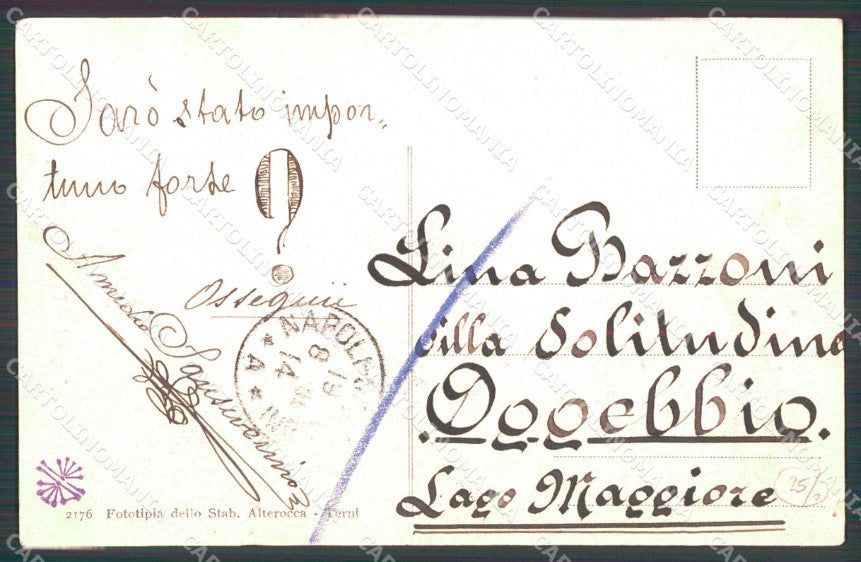 Sarò stato impor„
tuno forse ?
Ossequii
Amedeo Sanseverino
NAPOLI
* A *
Lina Bazzoni
Villa Solitudine
Oggebbio.
Lago Maggiore
25/2
2176 Fototipia dello Stab. Alterocca - Terni
CARTOLINOMANIA